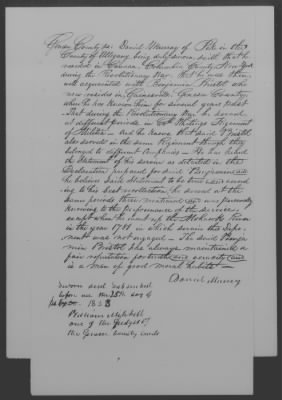 Genesee County ss: Daniel Murray of Pike in the
County of Allegany being duly sworn saith that he
resided in Canaan Columbia County New York
during the Revolutionary War that he was then
well acquainted with Benjamin Bristol who
now resides in Genesee County
where he has known him for several years past
that during the Revolutionary War he served
at different periods in Col Whitings Regiment
of Militia and he knows that said Bristol
also served in the same Regiment though they
belonged to different Companies He has heard
the Statement of his service as detailed in the
Declaration prepared for said Benjamin and
he believes said Statement to be true and accord
ing to his best recollection he served at the
same periods there mentioned and was personally
knowing to the performance of the services
except when he went up the Mohawk River
in the year 1781 in which service this depo
nent was not engaged The said Benja
min Bristol has always maintained a
fair reputation for truth and veracity and
is a man of good moral habits
Daniel Murray
Sworn and subscribed
before me the 25th day of
1833
William Mitchell
one of the Judges of
the Genesee County Courts